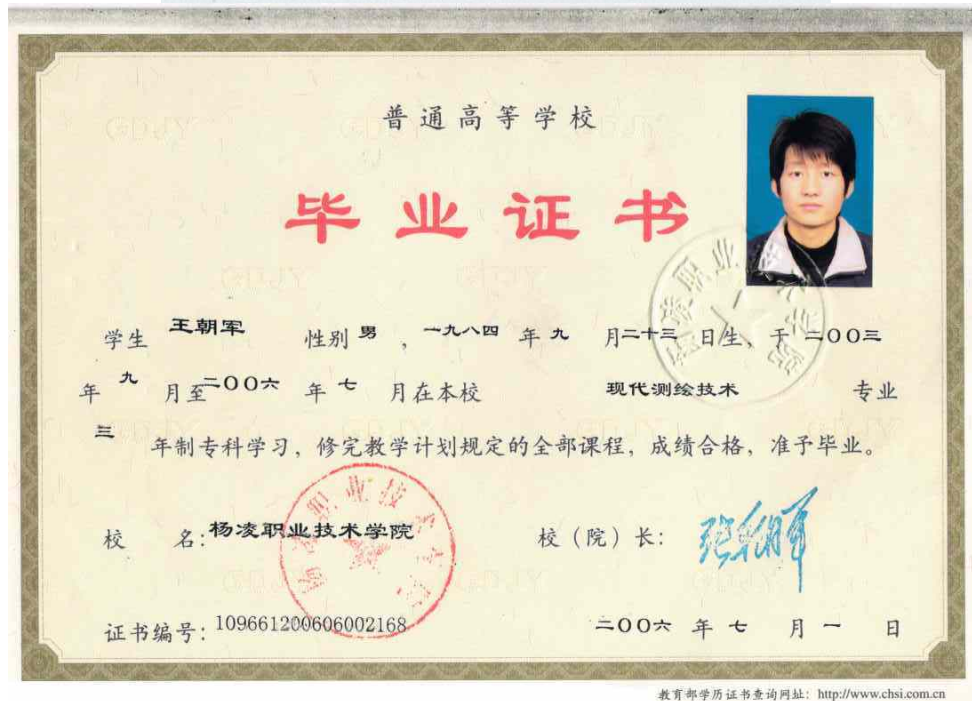 普通高等学校
毕业证书
学生 王朝军 性别 男 ，一九八四 年 九 月二十三 日生，于 二〇〇三
年 九 月至二〇〇六 年 七 月在本校 现代测绘技术 专业
三 年制专科学习，修完教学计划规定的全部课程，成绩合格，准予毕业。
校 名：杨凌职业技术学院 校（院）长：
杨凌职业技术学院
杨凌职业技术学院
证书编号：109661200606002168 二〇〇六 年 七 月 一 日
教育部学历证书查询网址：http://www.chsi.com.cn